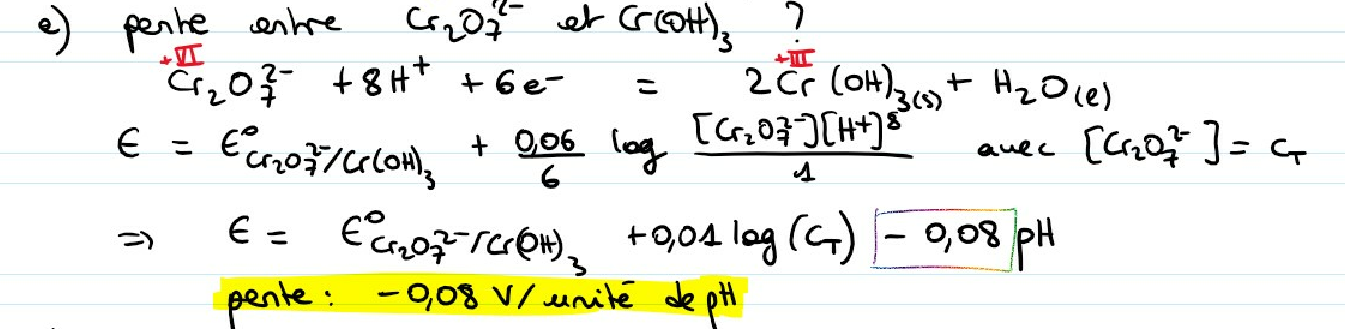 e) pente entre Cr₂O₇²⁻ et Cr(OH)₃ ?
+VI +III
Cr₂O₇²⁻ + 8H⁺ + 6e⁻ = 2Cr(OH)₃(s) + H₂O(l)
ϵ = ϵ°Cr₂O₇²⁻/Cr(OH)₃ + 0,06/6 log [Cr₂O₇²⁻][H⁺]⁸/1 avec [Cr₂O₇²⁻] = C_T
⇒ ϵ = ϵ°Cr₂O₇²⁻/Cr(OH)₃ + 0,01 log (C_T) - 0,08 pH
pente : -0,08 V/ unité de pH